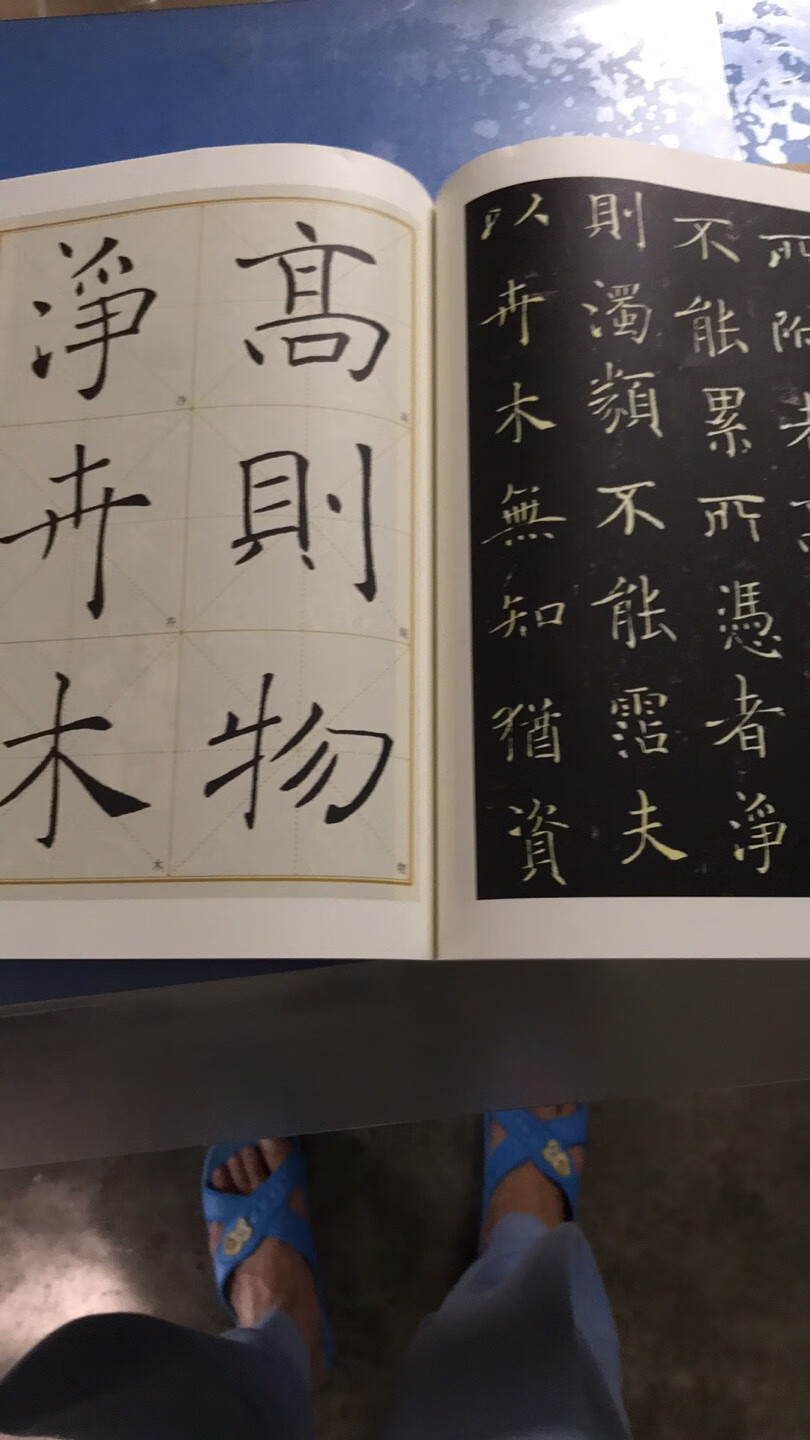 所附
不能累所憑者淨
則濁類不能霑夫
以卉木無知猶資
髙則物
淨卉木